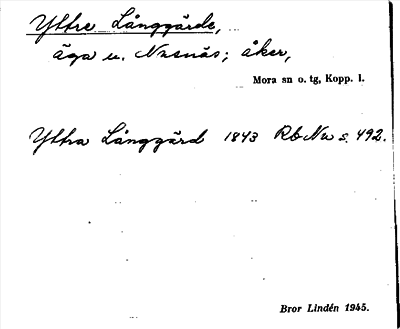 Yttre Långgärde,
äga u. Nusnäs; åker,
Mora sn o. tg, Kopp. l.
Yttra Långgärd 1843 Rb Nu s. 492.
Bror Lindén 1945.